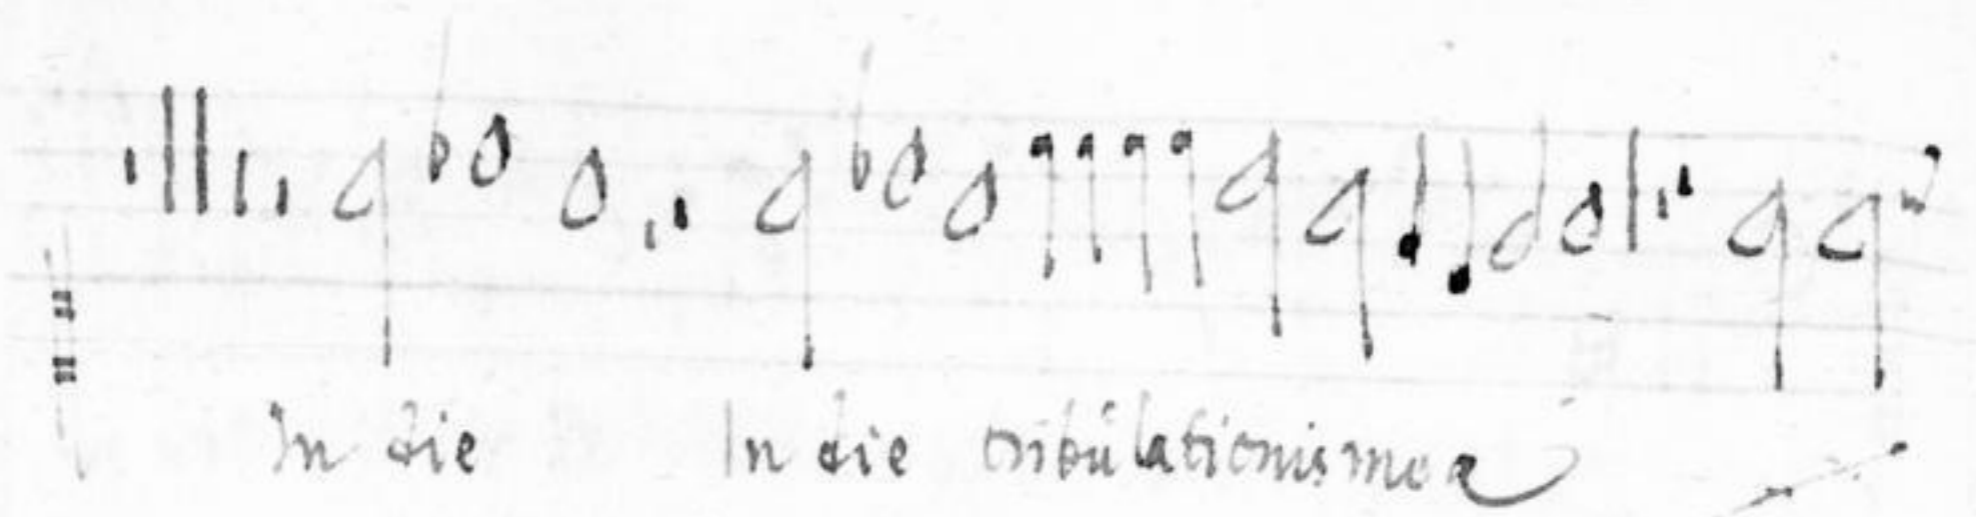 In die In die tribulationis mea